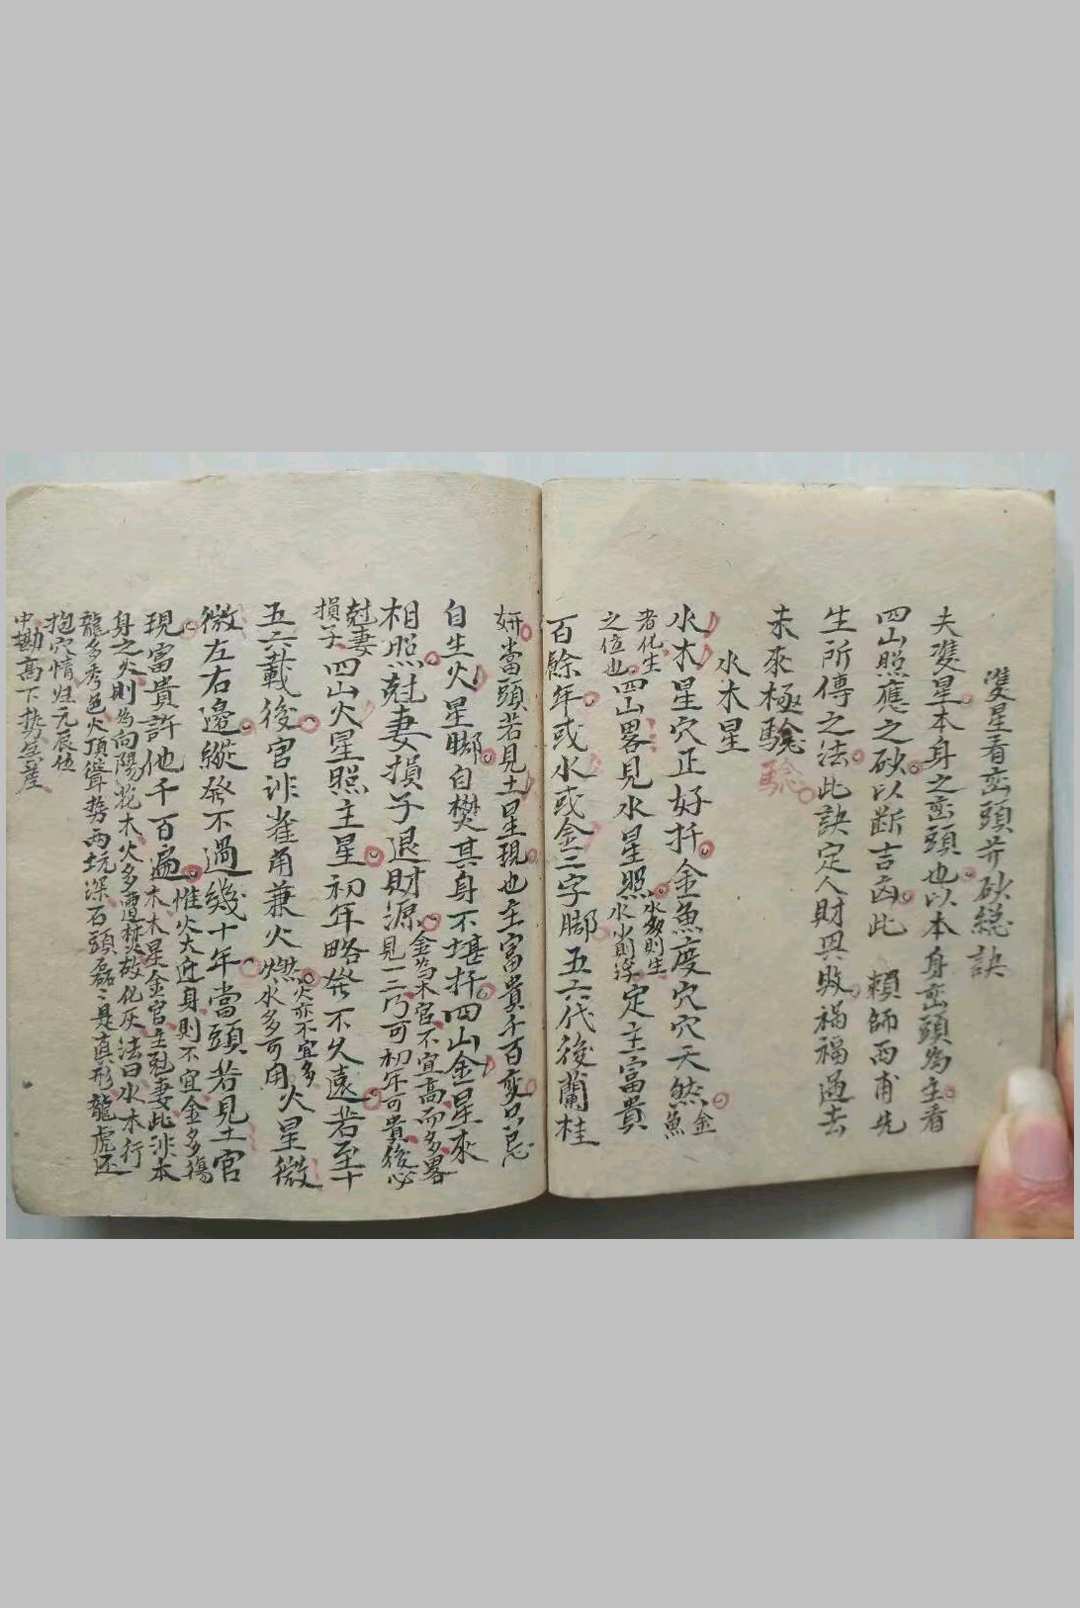 雙星看巒頭并砂總訣
夫雙星本身之巒頭也以本身巒頭為主看
四山照應之砂以斷吉凶此 賴師西甫先
生所傳之法此訣定人財興敗禍福過去
未來極驗
驗
水木星
水木星穴正好扦金魚度穴穴天然金
魚
者化生
之位也四山畧見水星照水多則生
水小則浮定主富貴
百餘年或水或金二字脚五六代後蘭桂
妍當頭若見土星現也主富貴千百変只忌
自生火星脚自樊其身不堪扦四山金星來
相照尅妻損子退財源金為木官不宜高而多畧
見一二乃可初年可貴後必
尅妻
損子四山火星照主星初年略発不久遠若至十
五六載後官非雀角兼火燃火亦不宜多
水多可用火星微
微左右邊縱発不過幾十年當頭若見土官
現富貴許他千百遍惟火大近身則不宜金多傷
木木星金官主尅妻此非本
身之火則為向陽花木火多遭焚故化灰法曰水木行
龍多秀邑火頂聳勢两坑深石頭磊〻是真形龍虎还
抱穴情归元辰位
中勘高下势無差